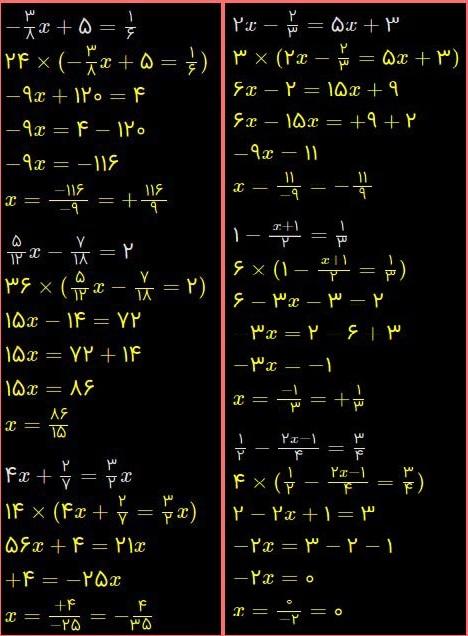 -۳/۸x + ۵ = ۱/۶
۲۴ × (-۳/۸x + ۵ = ۱/۶)
-۹x + ۱۲۰ = ۴
-۹x = ۴ - ۱۲۰
-۹x = -۱۱۶
x = -۱۱۶/-۹ = +۱۱۶/۹
۵/۱۲x - ۷/۱۸ = ۲
۳۶ × (۵/۱۲x - ۷/۱۸ = ۲)
۱۵x - ۱۴ = ۷۲
۱۵x = ۷۲ + ۱۴
۱۵x = ۸۶
x = ۸۶/۱۵
۴x + ۲/۷ = ۳/۲x
۱۴ × (۴x + ۲/۷ = ۳/۲x)
۵۶x + ۴ = ۲۱x
+۴ = -۲۵x
x = +۴/-۲۵ = -۴/۳۵
۲x - ۲/۳ = ۵x + ۳
۳ × (۲x - ۲/۳ = ۵x + ۳)
۶x - ۲ = ۱۵x + ۹
۶x - ۱۵x = +۹ + ۲
-۹x - ۱۱
x - ۱۱/-۹ - -۱۱/۹
۱ - x+۱/۲ = ۱/۳
۶ × (۱ - x+۱/۲ = ۱/۳)
۶ - ۳x - ۳ - ۲
۳x = ۲ - ۶ + ۳
-۳x - -۱
x = -۱/۳ = +۱/۳
۱/۲ - ۲x-۱/۴ = ۳/۴
۴ × (۱/۲ - ۲x-۱/۴ = ۳/۴)
۲ - ۲x + ۱ = ۳
-۲x = ۳ - ۲ - ۱
-۲x = ۰
x = ۰/-۲ = ۰